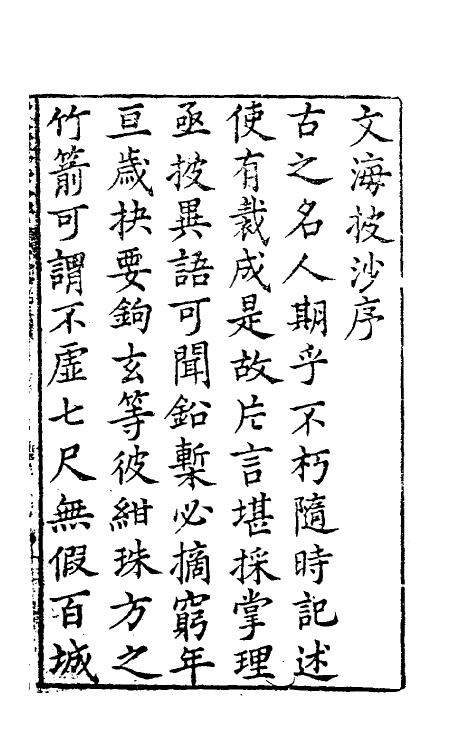 文海披沙序
古之名人期乎不朽隨時記述
使有裁成是故片言堪採掌理
亟披異語可聞鉛槧必摘窮年
亘歲抉要鉤玄等彼紺珠方之
竹箭可謂不虛七尺無假百城